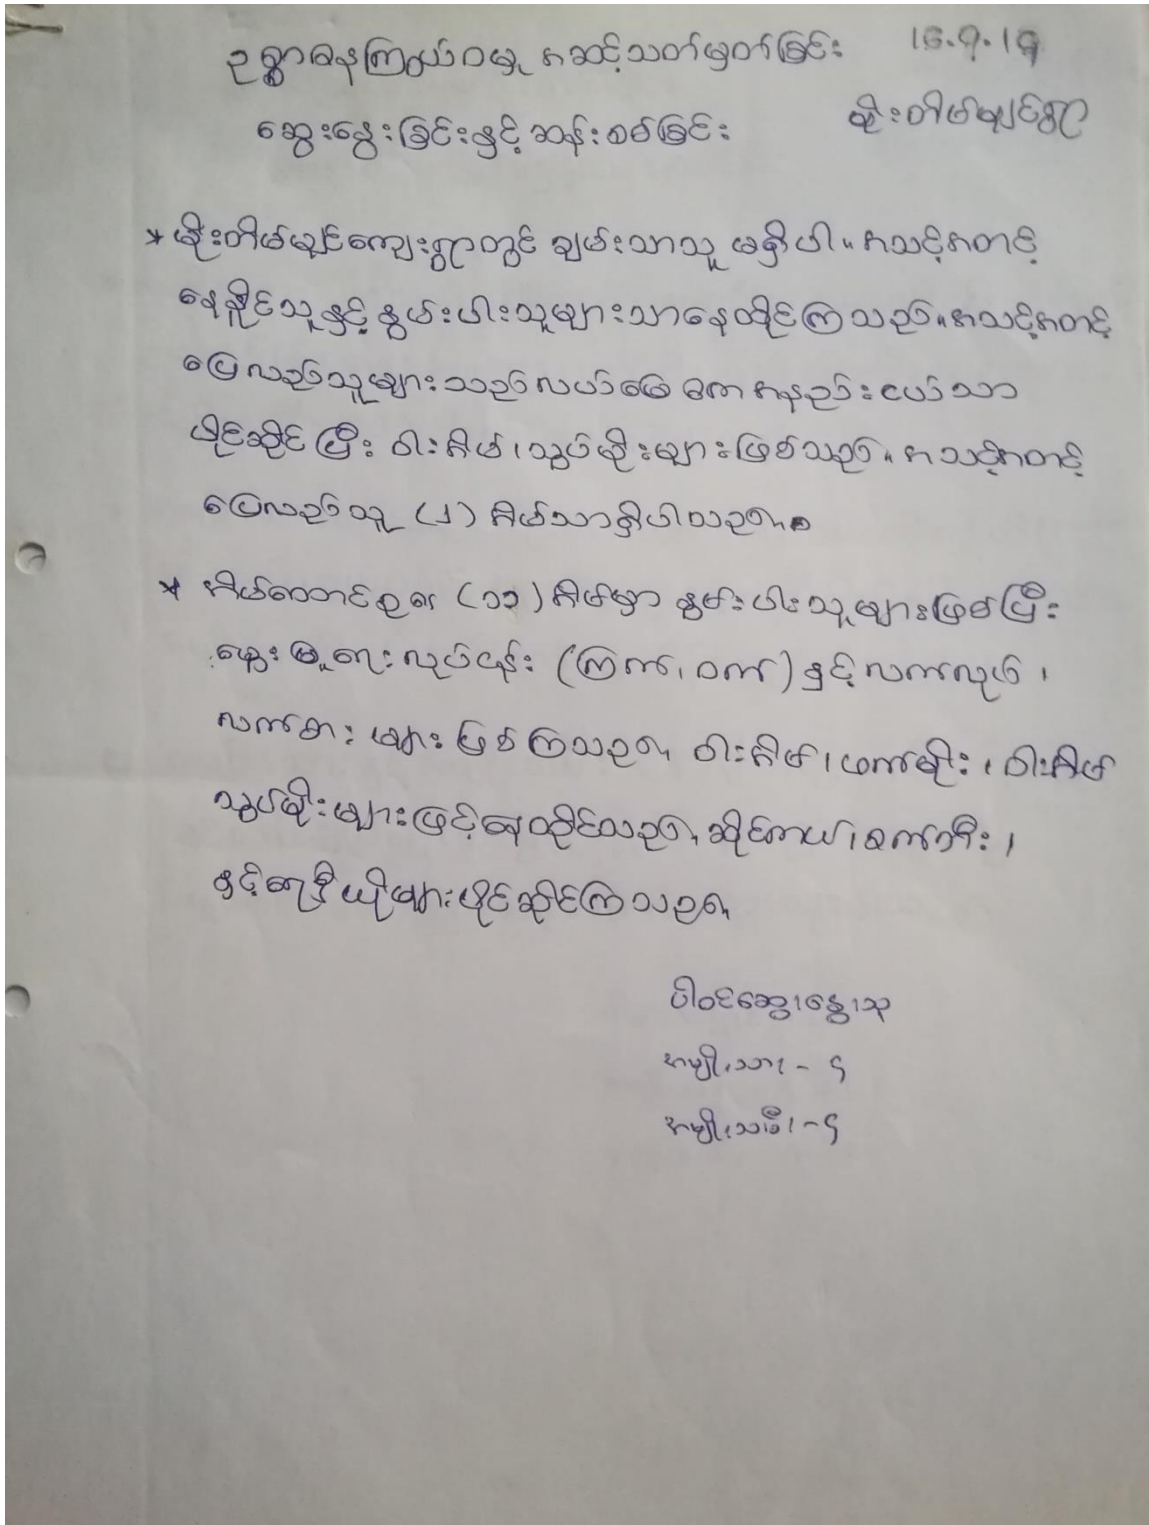 ဥစ္စာဓနကြွယ်ဝမှု အဆင့်သတ်မှတ်ခြင်း 16.9.19
ဆွေးနွေးခြင်းနှင့် ဆန်းစစ်ခြင်း မိုးတိမ်ချင်ရွာ
* မိုးတိမ်ချင်ကျေးရွာတွင် ချမ်းသာသူ မရှိပါ။ အသင့်အတင့်
နေနိုင်သူနှင့် နွမ်းပါးသူများသာနေထိုင်ကြသည်။ အသင့်အတင့်
ပြေလည်သူများသည် လယ်မြေ ဧက အနည်းငယ်သာ
ပိုင်ဆိုင်ပြီး ဝါးအိမ်၊ သွပ်မိုးများဖြစ်သည်။ အသင့်အတင့်
ပြေလည်သူ (၂) အိမ်သာရှိပါသည်။
* အိမ်ထောင်စု (၁၁) အိမ်မှာ နွမ်းပါးသူများဖြစ်ပြီး
မွေးမြူရေးလုပ်ငန်း (ကြက်၊ ဝက်) နှင့် လက်လုပ်၊
လက်စားများ ဖြစ်ကြသည်။ ဝါးအိမ်၊ ဖက်မိုး၊ ဝါးအိမ်
သွပ်မိုးများဖြင့် နေထိုင်သည်။ ဆိုင်ကယ်၊ စက်ဘီး၊
နှင့် ရေဒီယိုများပိုင်ဆိုင်ကြသည်။
ပါဝင်ဆွေးနွေးသူ
အမျိုးသား - ၄
အမျိုးသမီး - ၄